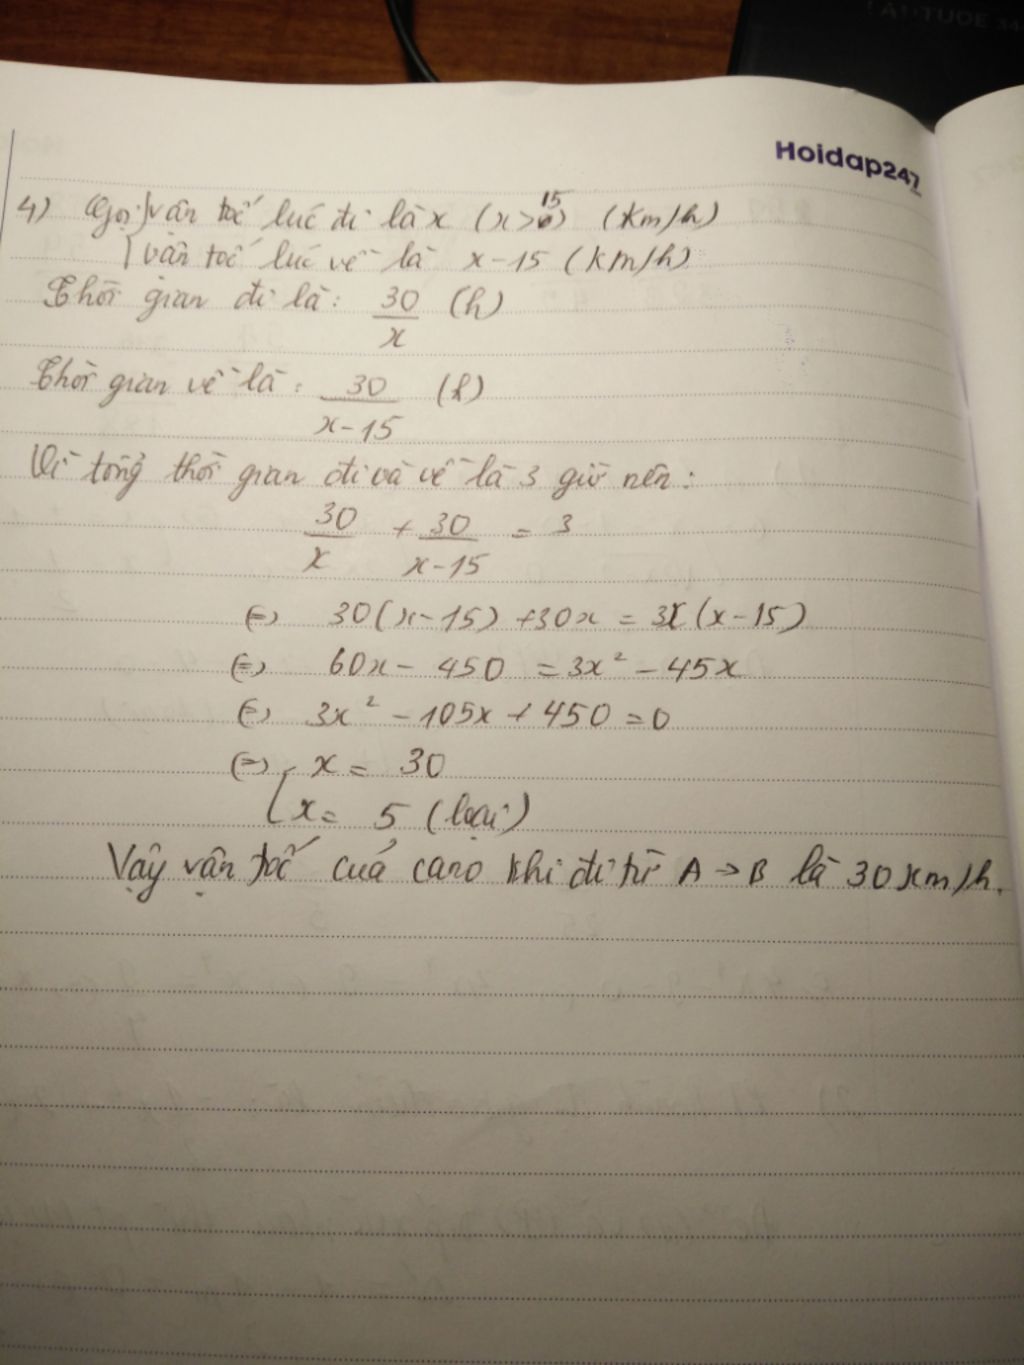 LATITUDE 34
Hoidap247
4) Gọi vận tốc lúc đi là x (x>15) (km/h)
vận tốc lúc về là x-15 (km/h)
Thời gian đi là: 30/x (h)
Thời gian về là: 30/(x-15) (h)
Vì tổng thời gian đi và về là 3 giờ nên:
30/x + 30/(x-15) = 3
(=) 30(x-15) +30x = 3x(x-15)
(=) 60x - 450 = 3x² - 45x
(=) 3x² - 105x + 450 = 0
(=) [ x = 30
x = 5 (loại)
Vậy vận tốc của cano khi đi từ A → B là 30 km/h.